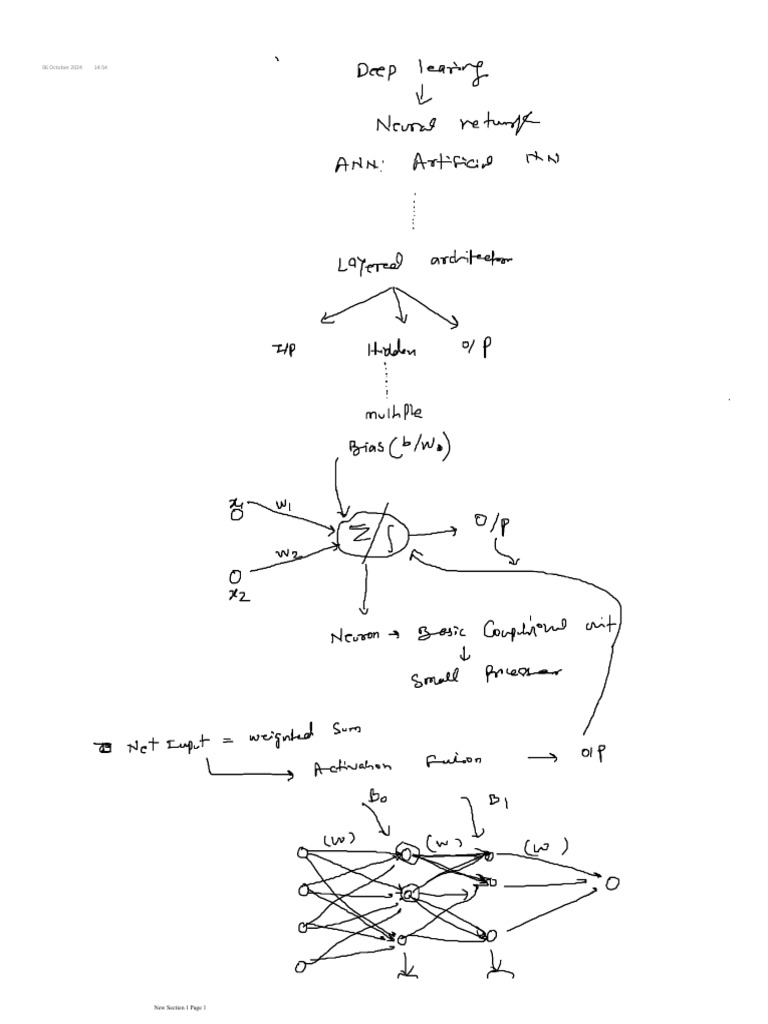 06 October 2024 14:54
Deep learing
Neural network
ANN: Artificial NN
Layered architector
I/P Hidden O/P
multiple
Bias (b/w₀)
x₁ w₁
O/P
w₂
x₂
Σ/∫
Neuron → Basic Computional unit
Small Processer
Net Input = weighted Sum
Activation Fuison → O/P
B₀ B₁
(w) (w) (w)
New Section 1 Page 1